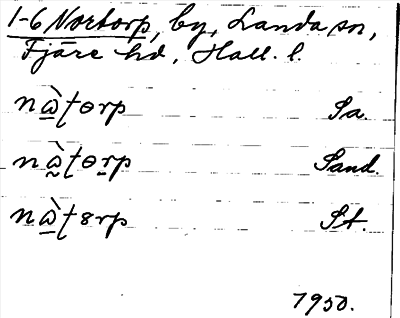 1-6 Nortorp, by, Landa sn,
Fjäre hd, Hall. l.
nὼ̲torp Sa.
nὼ̰tor̲p Sand.
nὼ̲tɞrp St.
1950.